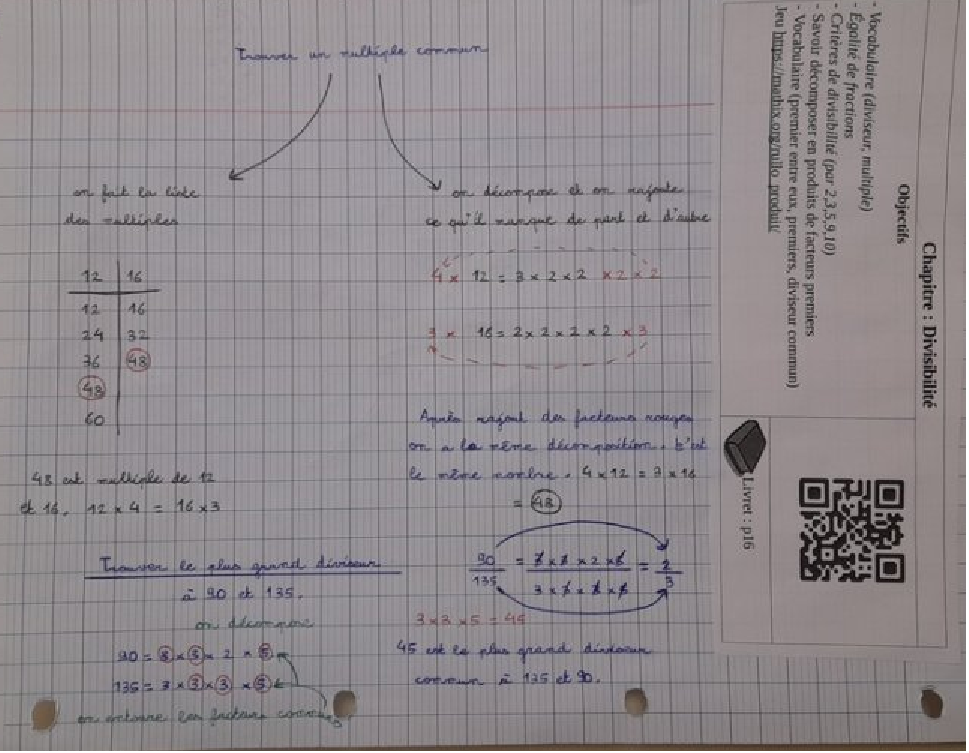 Trouver un multiple commun
on fait la liste
des multiples
12 16
12 16
24 32
36 48
48
60
48 est multiple de 12
et 16. 12 × 4 = 16 × 3
on décompose et on rajoute
ce qu'il manque de part et d'autre
4 × 12 = 3 × 2 × 2 × 2 × 2
3 × 16 = 2 × 2 × 2 × 2 × 3
Après rajout des facteurs rouges
on a la même décomposition. C'est
le même nombre. 4 × 12 = 3 × 16
= 48
Trouver le plus grand diviseur
à 90 et 135.
on décompose
90 = 3 × 3 × 2 × 5
135 = 3 × 3 × 3 × 5
on entoure les facteurs communs
90/135 = 3 × 3 × 2 × 5 / 3 × 3 × 3 × 5 = 2/3
3 × 3 × 5 = 45
45 est le plus grand diviseur
commun à 135 et 90.
Chapitre : Divisibilité
Objectifs
- Vocabulaire (diviseur, multiple)
- Égalité de fractions
- Critères de divisibilité (par 2,3,5,9,10)
- Savoir décomposer en produits de facteurs premiers
- Vocabulaire (premier entre eux, premiers, diviseur commun)
Jeu https://mathix.org/rullo_produit/
Livret : p16